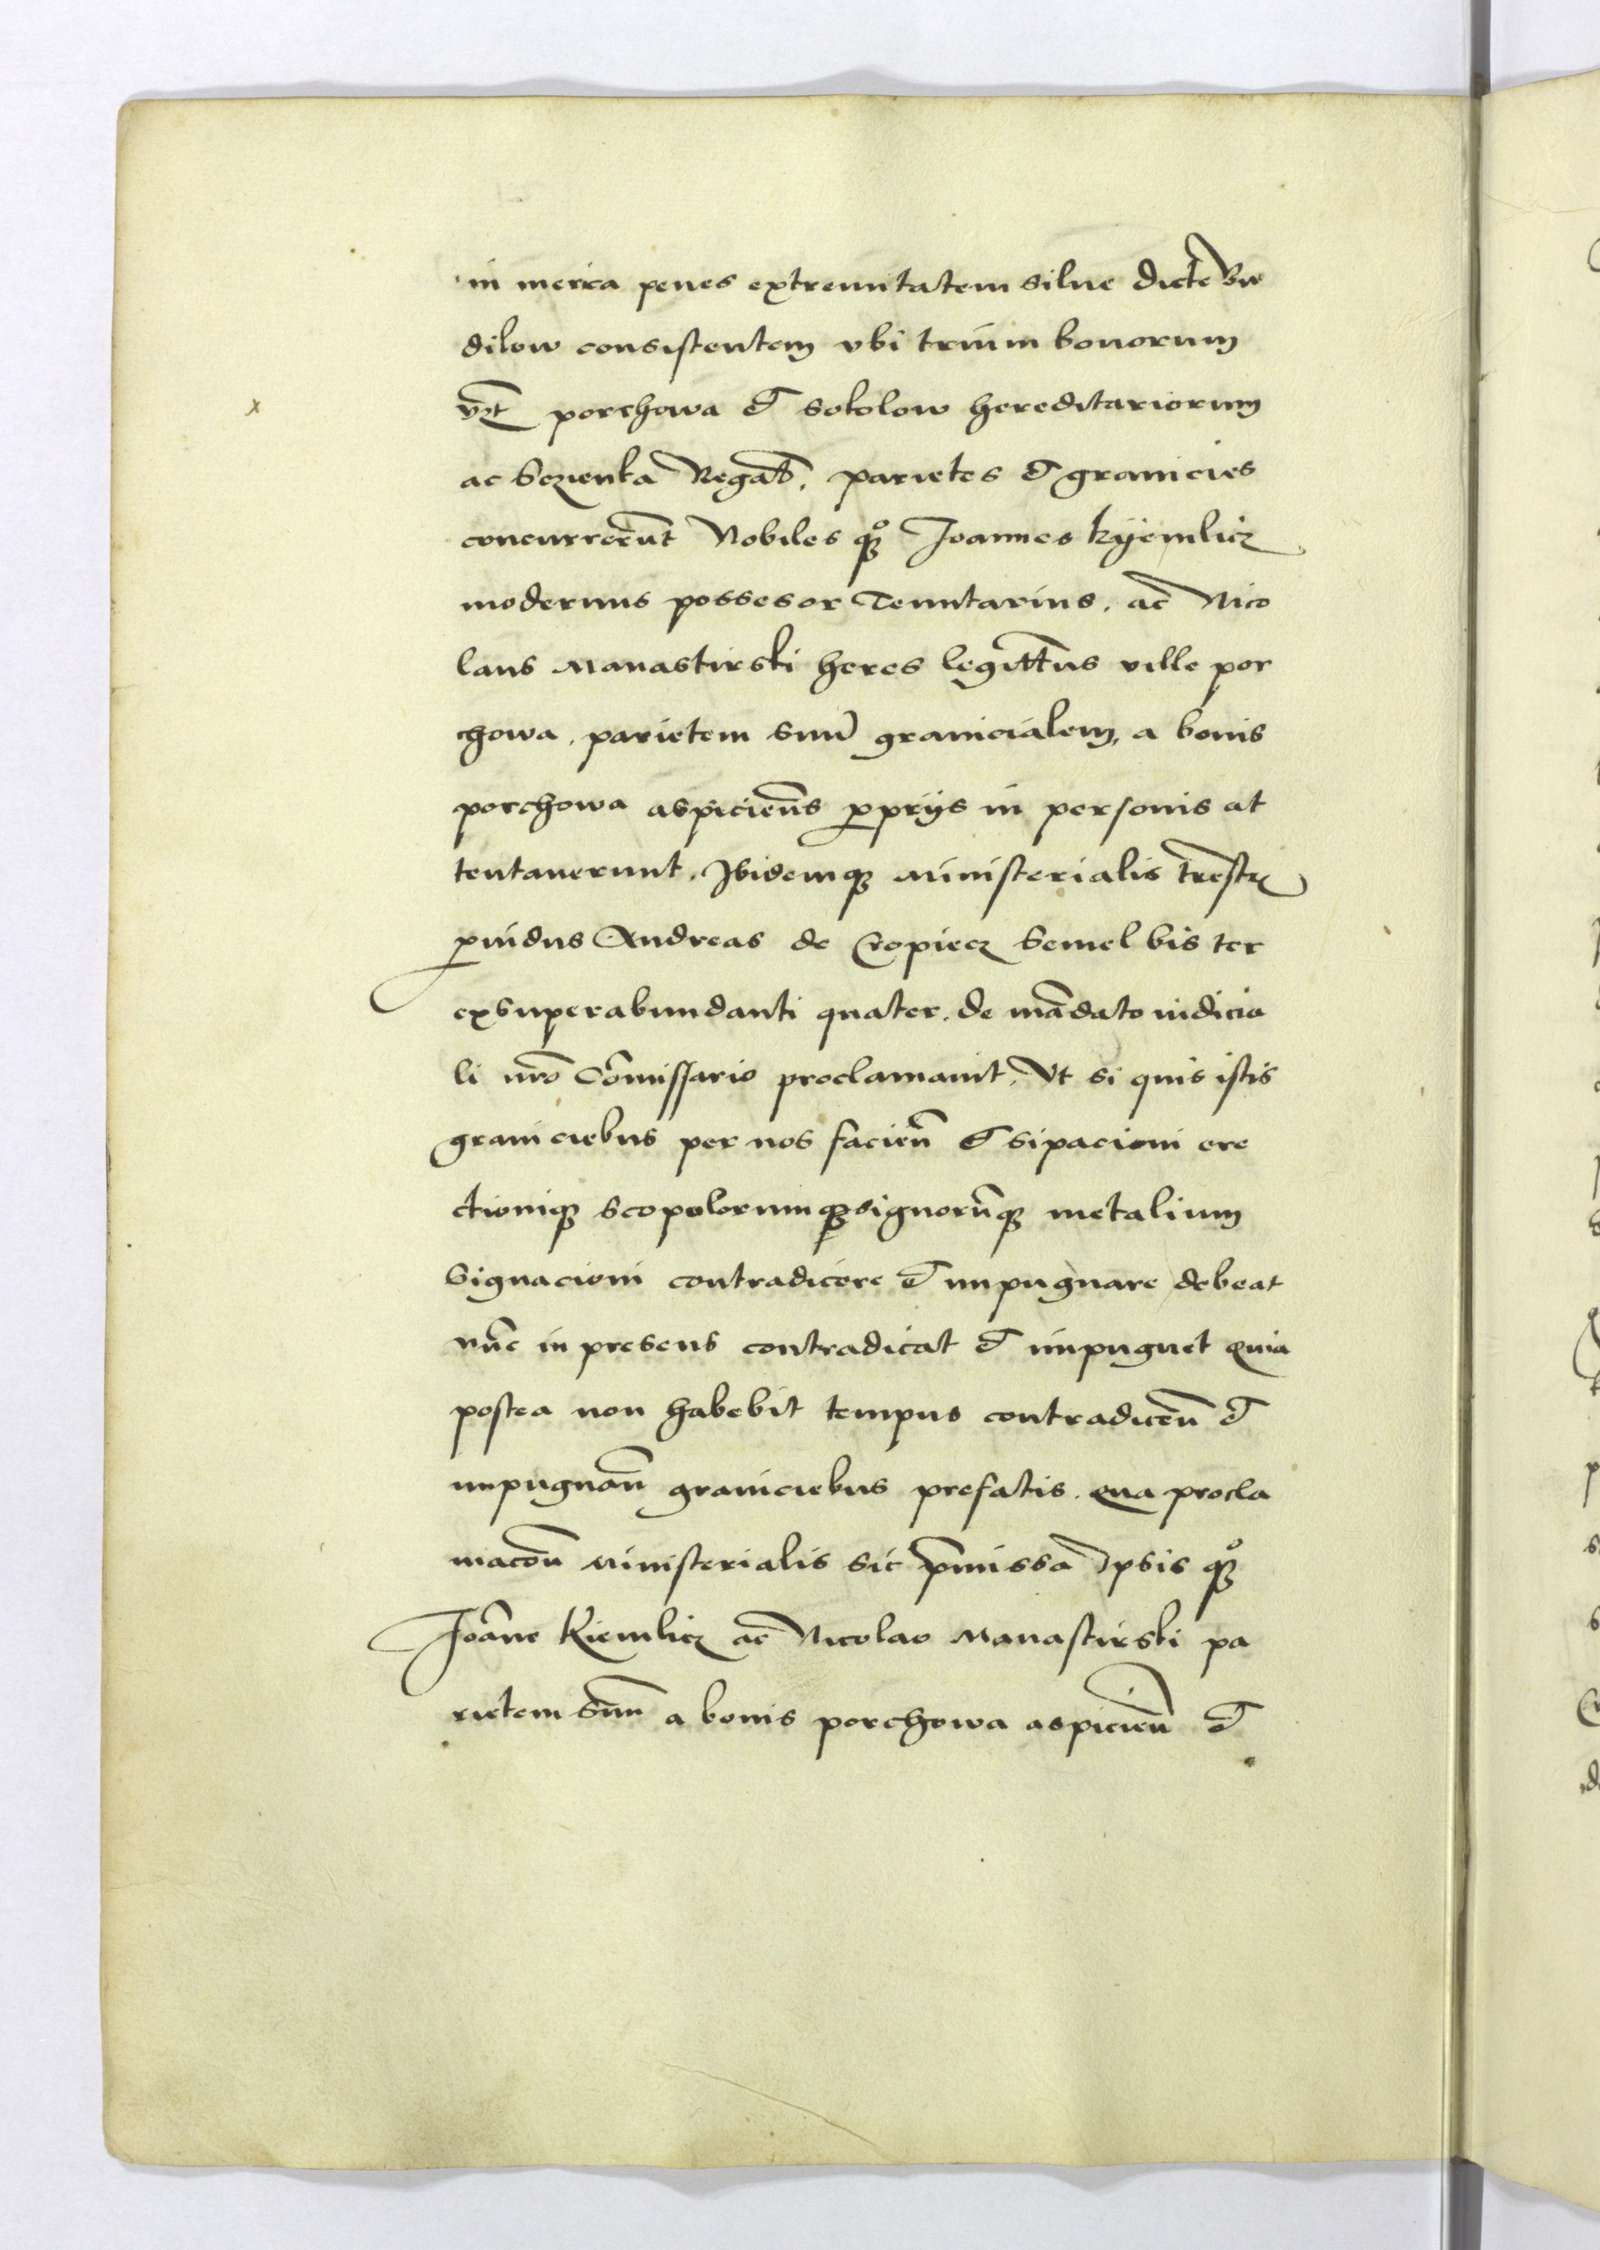 in merica penes extremitatem silue dicte Bu
dilow consistentem vbi trium bonorum
vꝫt porchowa et sokolow hereditariorum
ac bozienka Regał. parietes et granicies
concurrerūt Nobiles qꝫ Joannes kÿemlicz
modernus possesor Tenutarius. ac Nico
laus Manastirski heres legittūs ville por
chowa. parietem suū granicialem, a bonis
porchowa aspiciens ꝓprijs in personis at
tentauerunt. Ibidemqꝫ Ministerialis trēstr
ꝓuidus Andreas de Cropiecz semel bis ter
exsuperabundanti quater. de mādato iudicia
li nr̄o Cōmissario proclamauit. Vt si quis istis
graniciebus per nos facień et sipacioni ere
ctioniqꝫ scopulorum signorūqꝫ metalium
signacioni contradicere et impugnare debeat
nūc in presens contradicat et impugnet quia
postea non habebit tempus contradiceń et
impugnań graniciebus prefatis. qua procla
macōn Ministerialis sic p̄missa Ipsis qꝫ
Joāne Kiemlicz ac Nicolao Manastirski pa
rietem suū a bonis porchowa aspicień et